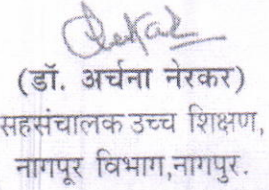 (डॉ. अर्चना नेरकर)
सहसंचालक उच्च शिक्षण,
नागपूर विभाग,नागपुर.